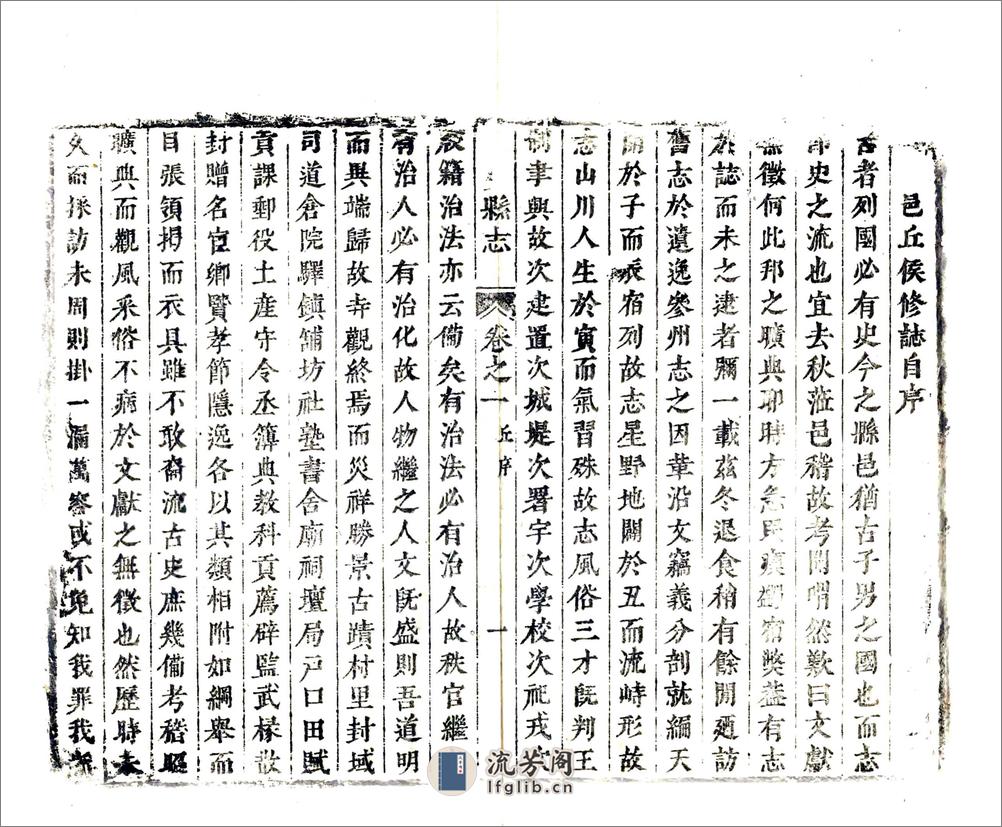 邑丘侯修誌自序
古者列國必有史今之縣邑猶古子男之國也而志
即史之流也宜去秋蒞邑稽故考聞喟然歎曰文獻
無徵何此邦之曠典耶時方急民瘼獨宿獎盡有志
於誌而未之逮者彌一載茲冬退食稍有餘閒廼訪
舊志於遺逸參州志之因革沿文竊義分剖就緬天
開於子而辰宿列故志星野地闢於丑而流峙形故
志山川人生於寅而氣習殊故志風俗三才旣判王
制事興故次建置次城堤次署宇次學校次祀戎
縣志
卷之一
丘序
一
版籍治法亦云備矣有治法必有治人故秩官繼
有治人必有治化故人物繼之人文旣盛則吾道明
而異端歸故寺觀終焉而災祥勝景古蹟村里封域
司道倉院驛鎮舖坊社塾書舍廟祠壇局戸口田賦
貢課郵役土産守令丞簿典教科貢薦辟監武椽敘
封贈名宦鄉賢孝節隱逸各以其類相附如綱舉而
目張領挈而衣具雖不敢裔流古史庶幾備考稽昭
曠典而觀風采俗不病於文獻之無徵也然歷時未
久而採訪未周則掛一漏萬畧或不免知我罪我
流芳阁
lfglib.cn